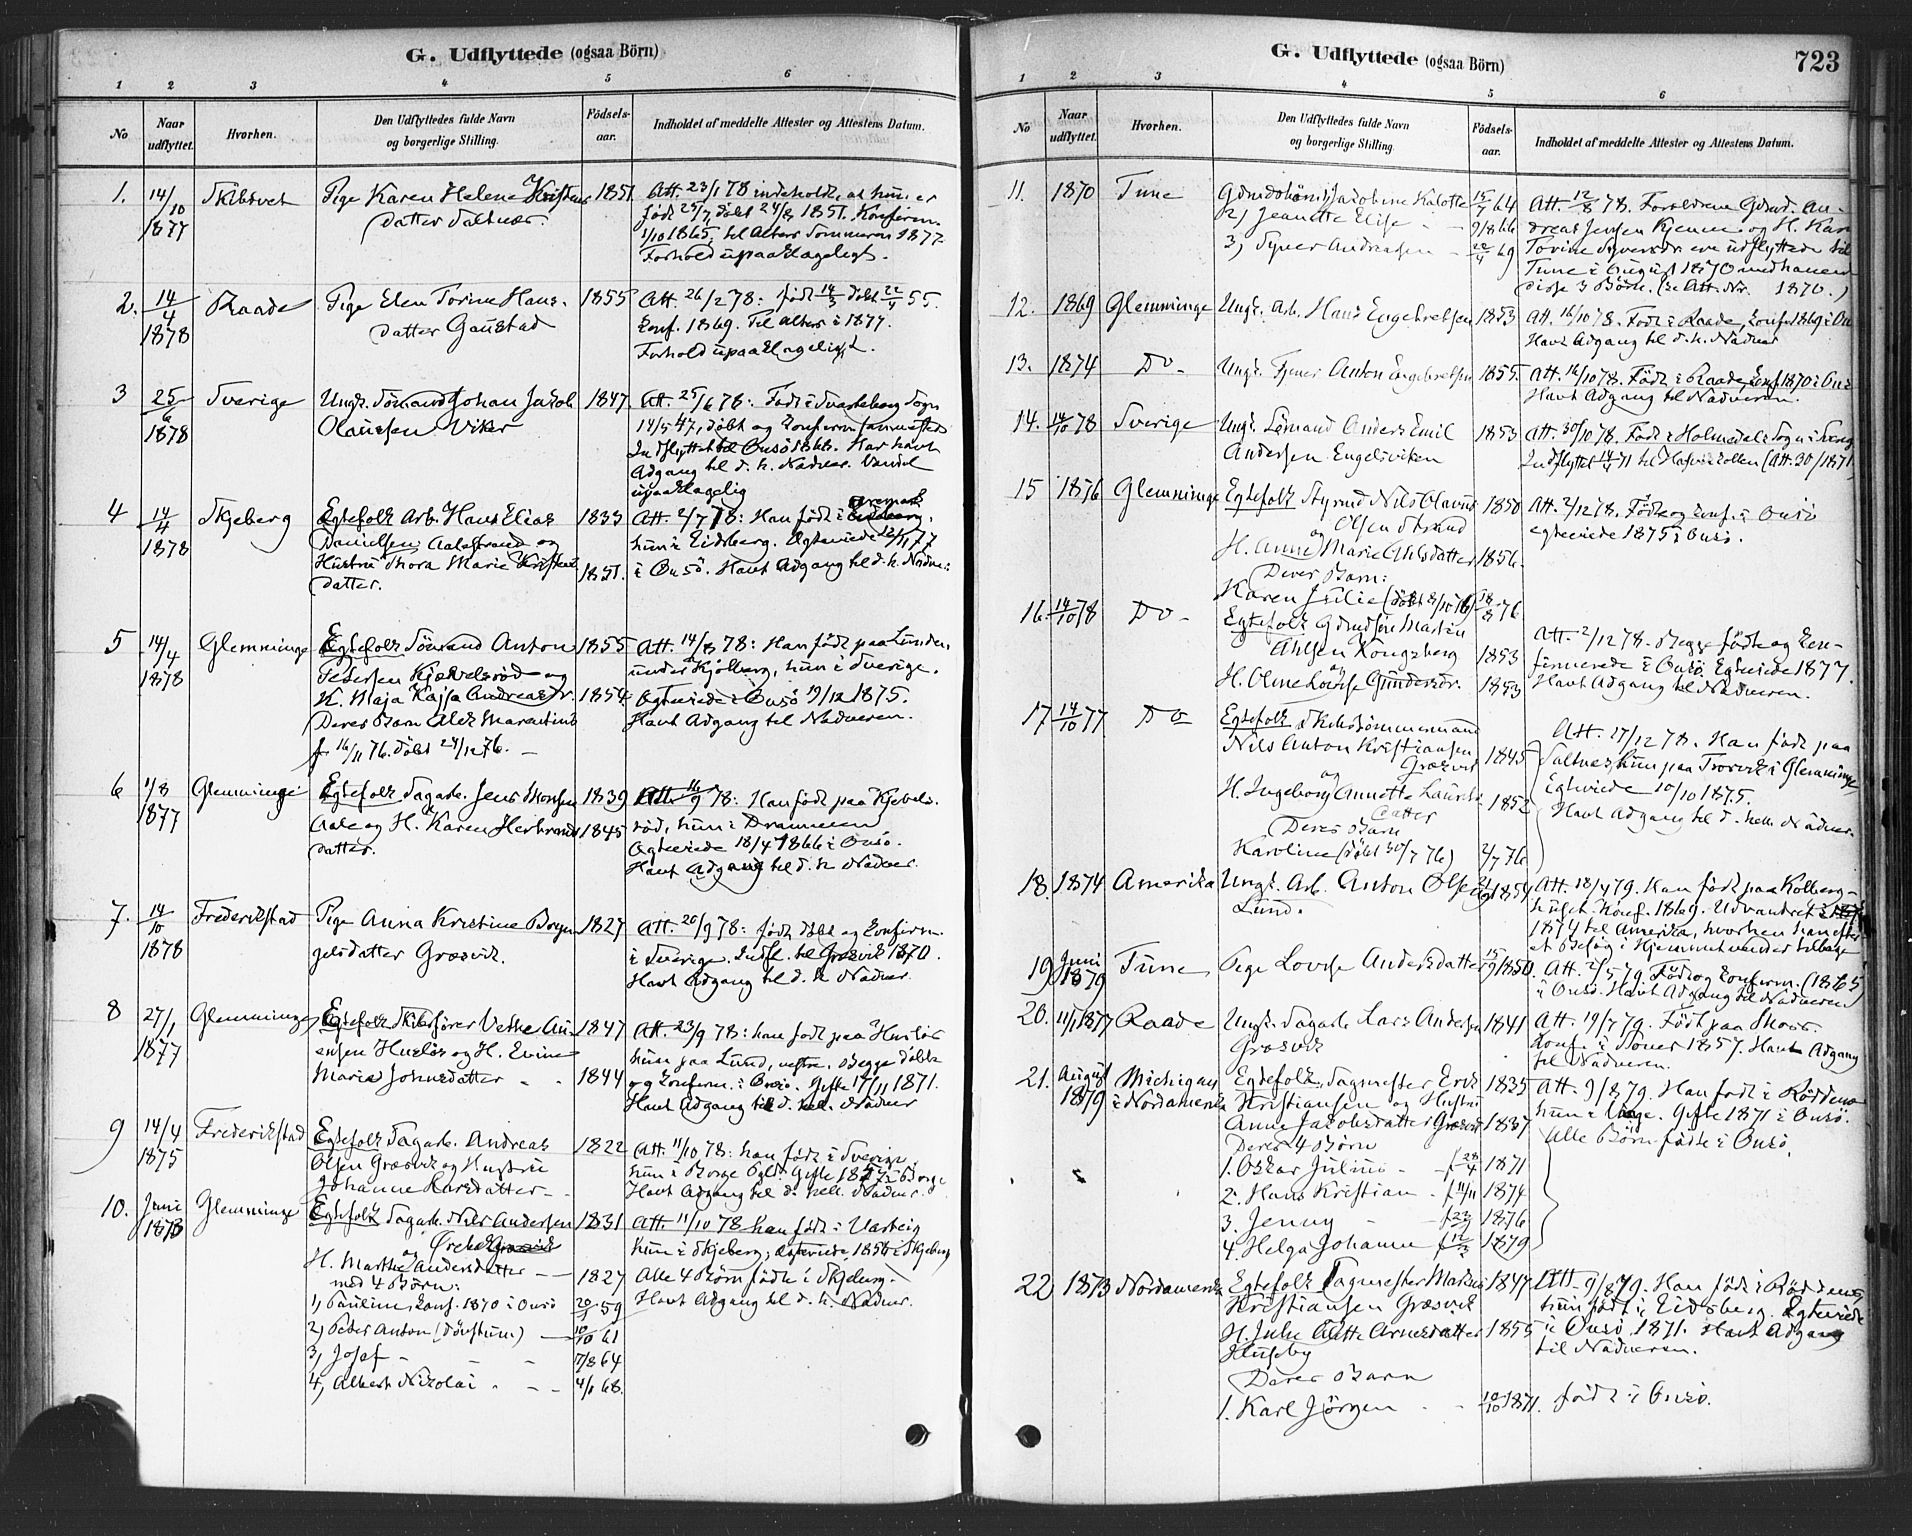 G. Udflyttede (ogsaa Börn)
1 2 3 4 5 6
No
Naar udflyttet.
Hvorhen.
Den Udflyttedes fulde Navn og borgerlige Stilling.
Födsels-aar.
Indholdet af meddelte Attester og Attestens Datum.
1. 14/10 1877 Skibtvet
Pige Karen Helene Kristens
datter Saltnær.
1851
Att. 23/1 78 indeholdt, at hun er
født 25/7, døbt 24/8 1851. Konfirm.
1/10 1865, til Alters Sommeren 1877.
Forhold upaaklageligt.
2. 14/4 1878 Raade
Pige Elen Torine Hans-
datter Gaustad
1855
Att. 26/2 78: født 14/3 døbt 22/4 55.
Konf. 1869. Til Alters i 1877.
Forhold upaaklageligt.
3 25/6 1878 Sverige
Ungk. Sömand Johan Jakob
Olaussen Viker
1847.
Att. 25/6 78: Født i Svarteborg Sogn
14/5 47, döbt og konfirm. sammesteds
Indflyttet til Onsö 1868. Har havt
Adgang til d. h. Nadver. Vandel
upaaklagelig
4 14/4 1878 Skjeberg
Egtefolk Arb. Hans Elias
Danielsen Aalestrand og
Hustru Thora Marie Kristens
datter.
1833
1851.
Att. 2/7 78: Han född i Aremark
hun i Eidsberg. Egteviede 77
i Onsö. Havt Adgang til d. h. Nadver
5 14/4 1878 Glemminge
Egtefolk Sömand Anton
Petersen Kjækelsröd og
H. Maja Kajsa Andreasdr.
Deres Barn Alex Marentius
f. 16/11 76. döbt 24/12 76. —
1855
1854.
Att. 14/8 78: Han født paa Lunden
under Kjölberg, hun i Sverige.
Egteviede i Onsö 19/12 1875.
Havt Adgang til Nadveren.
6 1/8 1877 Glemminge
Egtefolk Dagarb. Jens Monsen
Aale og H. Karen Herbrands
datter.
1839
1845
Att. 16/9 78: Han født paa Kjebels-
röd, hun i Drammen
Egteviede 18/4 1866 i Onsö.
Havt Adgang til d. h Nadver.
7. 14/10 1878 Frederikstad
Pige Anna Kristine Bryn
gelsdatter Græsvik.
1827
Att. 20/9 78: født, døbt og konfirm.
i Sverige. Indfl. til Græsvik 1870.
Havt Adgang til d. h Nadver.
8 27/1 1877 Glemminge
Egtefolk Skibsfører Vethe An-
ensen Huslös og H. Evine
Marie Johnsdatter - -
1847
1844
Att. 23/9 78: han født paa Huslös
hun paa Lund, vestre. Begge döbt
og konfirm. i Onsö. Gifte 17/11 1871.
Havt Adgang til d. hell. Nadver
9 14/4 1875 Frederikstad
Egtefolk Dagarb. Andreas
Olsen Græsvik og Hustru
Johanne Larsdatter -
1822
Att. 11/10 78: han født i Sverige,
hun i Borge Pgld. Gifte 1857 i Borge
Havt Adgang til d. hell. Nadver.
10. Juni 1873 Glemminge
Egtefolk Dagarb. Nils Andersen
Örebek
og
H. Marthe Andersdatter —
med 4 Börn:
1, Pauline, Konf. 1870 i Onsö
2, Peter Anton (dövstum) —
3, Josef - - -
4, Albert Nikolai - - -
1831
1827
59
10/10 61
7/8 64
4/1 68.
Att. 11/10 78 han född i Varteig
hun i Skjeberg; egteviede 1854 i Skjeberg
Alle 4 Börn födte i Skjeberg.
Havt Adgang til d. h. Nadver.
G. Udflyttede (ogsaa Börn) 723
1 2 3 4 5 6
No
Naar udflyttet.
Hvorhen.
Den Udflyttedes fulde Navn og borgerlige Stilling.
Födsels-aar.
Indholdet af meddelte Attester og Attestens Datum.
11. 1870 Tune
1, Jacobine Kalotte 15/7 64
2, Jeanette Elise - - 9/8 66
3, Syver Andreasen - 20/4 69
Att. 12/8 78. Forældrene Gdmd. An-
dreas Jensen Kjenne og H. Kar
Torine Syversdr. ere udflyttede til
Tune i August 1870 medhavende
disse 3 Börn. (se Att. Nr. 1870.)
12. 1869 Glemminge
Ungk. Arb. Hans Engebretsen 1853
Att. 16/10 78. Født i Raade, Konf. 1869 i On
Havt Adgang til d. h. Nadver
13. 1874 Do -
Ungk. Tjener Anton Engebretsen 1855.
Att. 16/10 78. Født i Raade, Konf. 1870 i Onsö
Havt Adgang til Nadveren.
14. 14/10 78 Sverige
Ungk. Sömand Anders Emil
Andersen Engelsviken
1853
Att. 30/10 78. Født i Holmedals Sogn i Sverig
Indflyttet 14/4 71 til Hasvikkollen (Att. 30/1871)
15 1876 Glemminge
Egtefolk Styrmd Nils Olavus
Olsen Strand
og
H. Anne Marie Ahlsdatter
Deres Barn:
Karen Julie (döbt 8/10 76)
1850
1856.
18/8 76
Att. 2/12 78. Födte og konf. i Onsö
egteviede 1875 i Onsö.
16. 14/10 78 Do -
Egtefolk Gdmdsön Martin
Ahlsen Kongsberg
og
H. Oline Lovise Gundersdr.
1853
1853
Att. 2/12 78. Begge födte og kon-
firmerede i Onsö. Egteviede 1877.
Havt Adgang til Nadveren.
17 14/10 77 Do
Egtefolk Skibstömmermand
Nils Anton Kristiansen
Græsvik
og
H. Ingeborg Annette Laurits
datter
Deres Barn
Karoline (döbt 30/7 76)
1845
1852
2/7 76
Att. 27/12 78. Han födt paa
Saltnes, hun paa Trosvik i Glemminge
Egteviede 10/10 1875.
Havt Adgang til d. hell. Nadver.
18. 1874 Amerika
Ungk. Arb. Anton Olsen
Lund.
1854
Att. 18/4 79. Han född paa Kolberg-
huset. Konf. 1869. Udvandret
1874 til Amerika, hvorhen han efter
et Besög i Hjemmet vender tilbage
19 Juni 1879 Tune
Pige Lovise Andersdatter 15/9 1850.
Att. 2/5 79. Född og konfirm. (1865)
i Onsö. Havt Adgang til Nadveren
20. 11/1 1877 Raade
Ungk. Dagarb. Lars Andersen
Græsvik
1841
Att. 19/7 79. Född paa Moss.
Konf. i Soner 1857. Havt Adgang
til Nadveren.
21. August 1879 Michigan i Nordamerika
Egtefolk, Sagmester Erik
Kristiansen og Hustru
Anne Jacobsdatter Græsvik
Deres 4 Börn
1. Oskar Julius - - f 28/4 1871
2. Hans Kristian - f 11/11 1874
3. Jenny - f 1876
4. Helga Johanne f 1879
1835
1837
Att. 9/8 79. Han född i Röddenes
hun i . Gifte 1871 i Onsö.
Alle Börn födte i Onsö.
22 1873 Nordamerika
Egtefolk Sagmester Marius
Kristiansen Græsvik
H. Julie Arnesdatter
Huseby
Deres Barn
1. Karl Jörgen - - 10/10 1871.
1847
1855
Att. 9/8 79. Han född i Röddenes
hun född i Eidsberg. Egteviede
i Onsö 1871. Havt Adgang
til Nadveren.
född i Onsö.